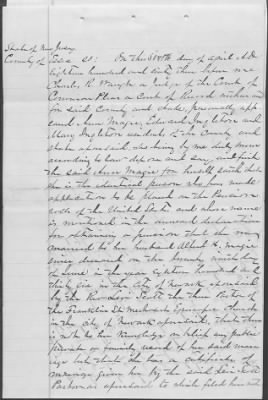 State of New Jersey
County of Essex SS: On this day of April A.D.
Eighteen hundred and sixty three before me
Charles R. Waugh a Judge of the Court of
Common Pleas a Court of Record within and
for said County and State, personally app
eared Anna Magie, Edward Ingleton and
Mary Ingleton residents of the County and
State aforesaid who being by me duly sworn
according to law depose and say, and first
the said Anna Magie for herself saith that
she is the identical person who has made
application to be placed on the Pension
roll of the United States and whose name
is mentioned in the annexed declaration
for obtaining a pension that she was
married to her husband Albert H. Magie
since deceased on the twenty day
of June in the year eighteen hundred and
fifty six in the City of Newark aforesaid
by the Reverend Scott the then Pastor of
the Franklin St Methodist Episcopal Church
in the City of Newark aforesaid, that there
is not to her knowledge any public
private or family record of her said marri
age but that she has a certificate of
marriage given her by the said Scott
Pastor as aforesaid which filed herewith